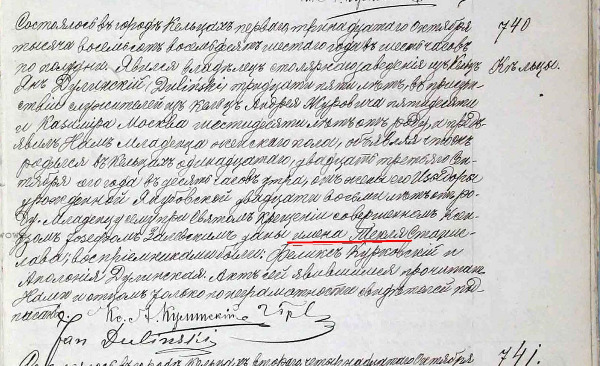 Состоялось въ городѣ Кельцахъ перваго тринадцатаго Октября
740
тысяча восемьсотъ восемьдесятъ шестаго года въ шесть часовъ
по полудни. Явился владѣлец столярнаго заведенія изъ Кельцъ
Къльцы.
Янъ Дулинскій (Dulinski) тридцати пяти лѣтъ, въ присут-
ствіи служителей изъ Кельцъ Андрея пятидесяти
и Казиміра Москва шестидесяти лѣтъ отъ роду, и предъ-
явилъ Намъ Младенца женскаго пола, объявляя что онъ
родился въ Кельцахъ одинадцатаго, двадцать третьяго Сен-
тября сего года въ десять часовъ утра, отъ жены его Изыдоры
урожденной двадцати восьми лѣтъ отъ ро-
ду. Младенцу сему при Святомъ Крещеніи совершенномъ Ксен-
дзомъ Іосифомъ даны имена Текля Стани-
слава; воспріемниками были: Феликсъ Курковскій и
Аполонія Дулинская. Актъ сей явившимся прочитанъ
Нами и отцомъ только по неграмотности свидѣтелей под-
писанъ.
Кс. А.
Jan Dulinski
въ городѣ Кельцахъ Октября
741.